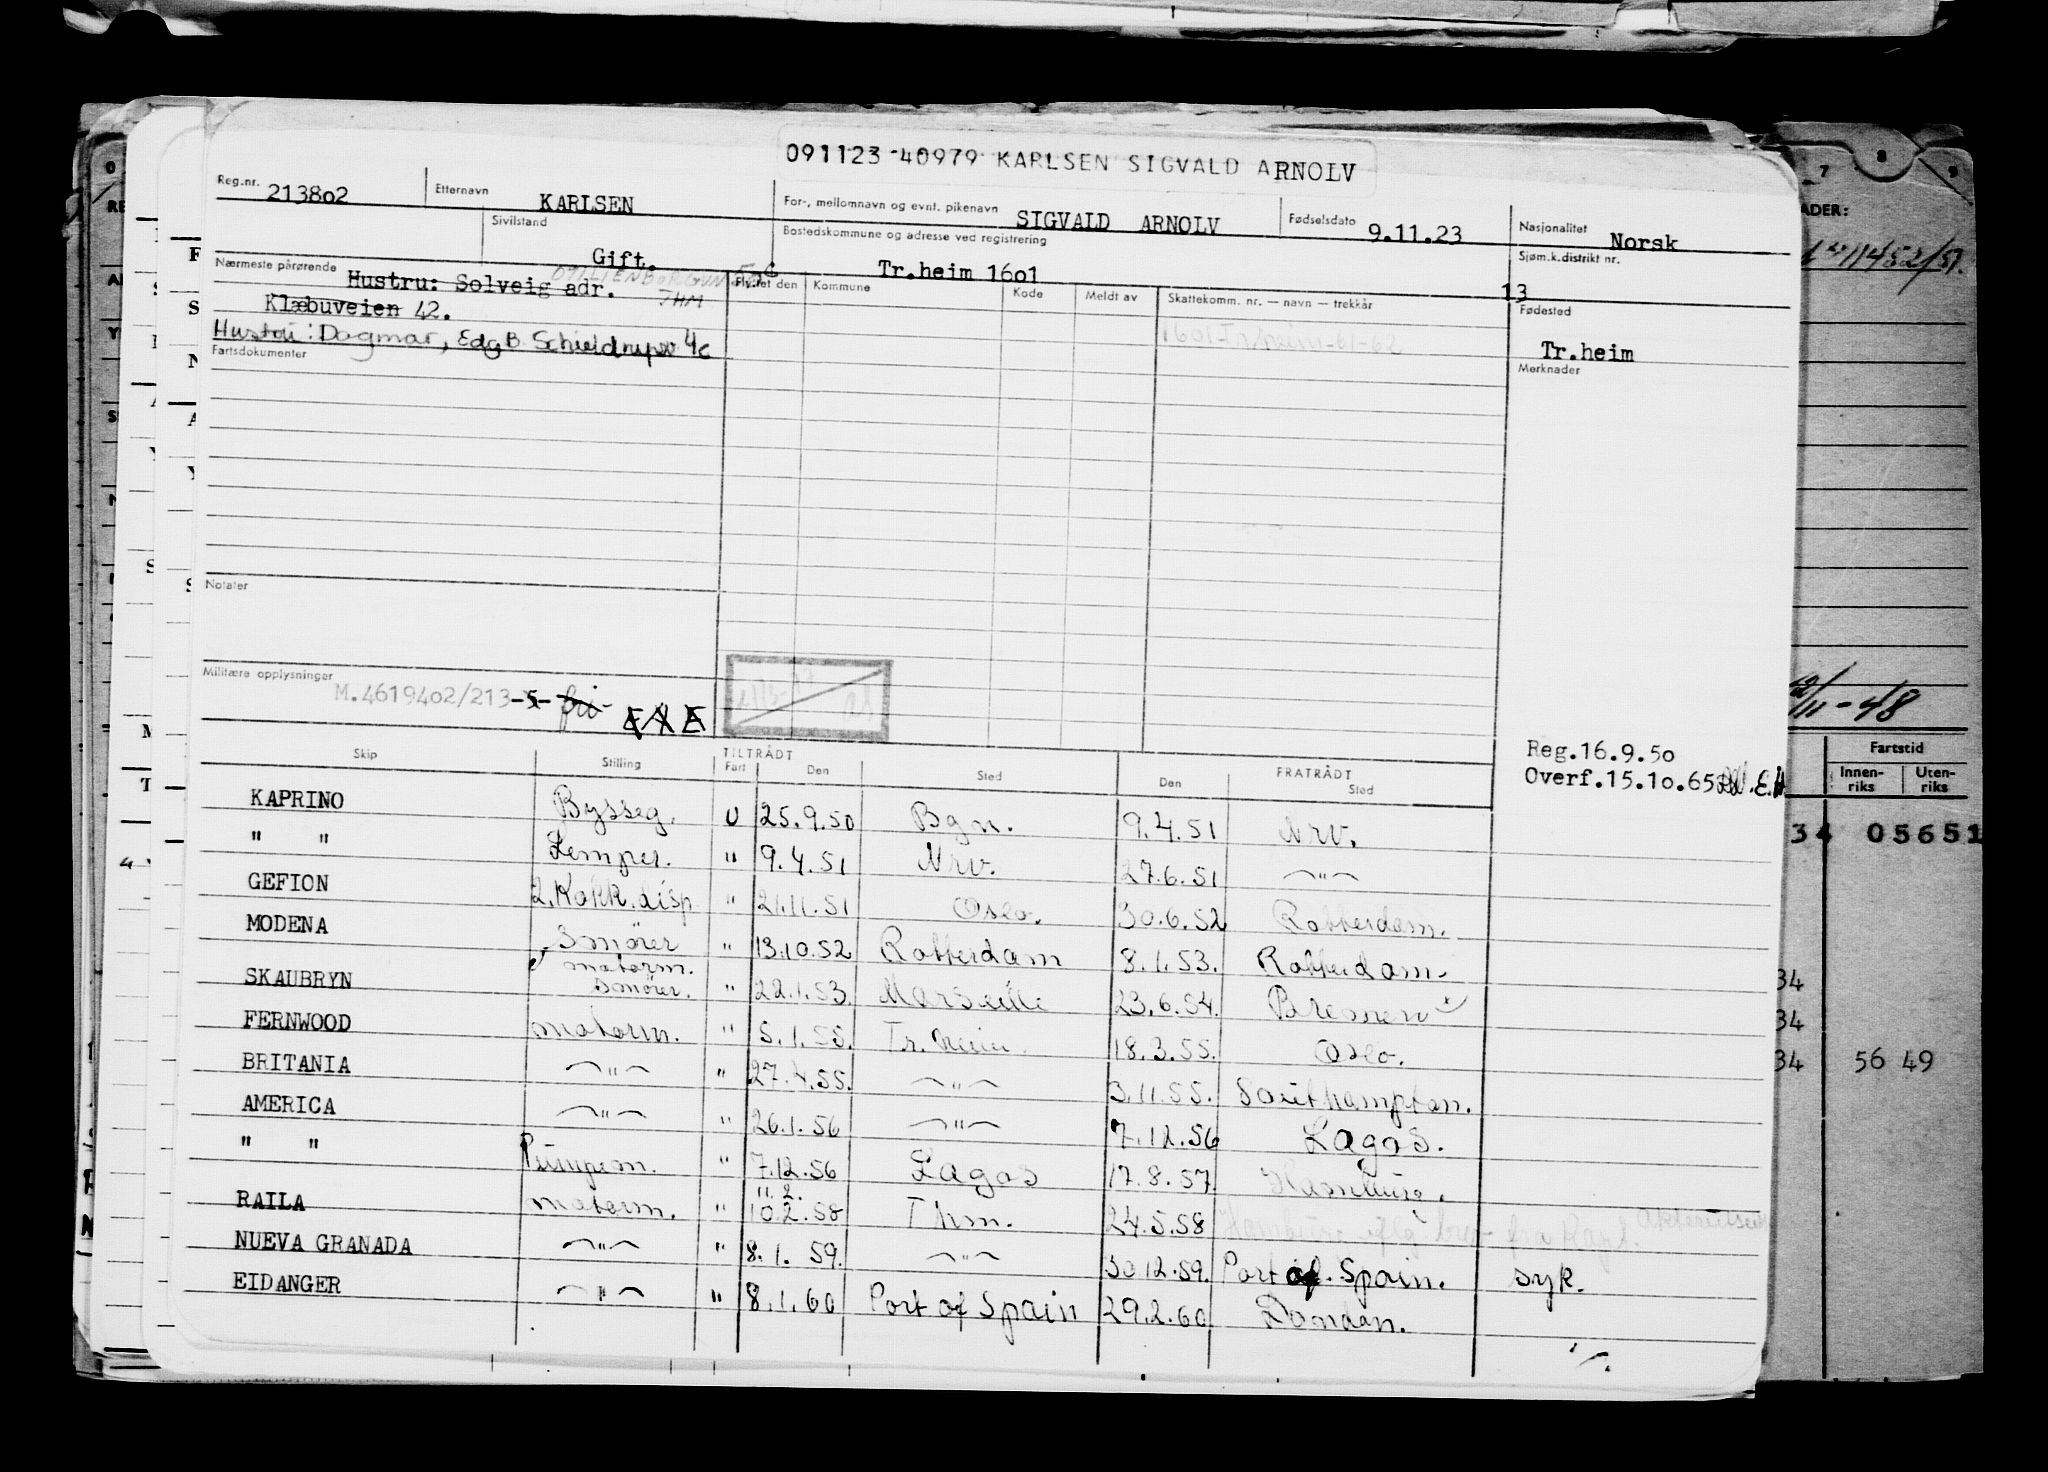 091123 40979 KARLSEN SIGVALD ARNOLV
Reg.nr. 213802 Etternavn KARLSEN For-, mellomnavn og evnt. pikenavn SIGVALD ARNOLV Fødselsdato 9.11.23 Nasjonalitet Norsk
Sivilstand Gift. Bostedskommune og adresse ved registrering Tr.heim 1601 Sjøm.k.distrikt nr. 13
Nærmeste pårørende Hustru: Solveig adr. Flyttet den Kommune Kode Meldt av Skattekomm. nr. — navn — trekkår Fødested
THM
Klæbuveien 42. 1601-Tr.heim-61-62
Hustru: Dagmar, Edg B. Schieldrupsv 4c Tr.heim
Fartsdokumenter Merknader
Notater
Militære opplysninger M.4619402/213-5- fri
Reg.16.9.50
Overf.15.10.65 E.H.
Skip Stilling TILTRÅDT Fart Den Sted FRATRÅDT Den Sted
KAPRINO Bysseg. U 25.9.50 Bgn. 9.4.51 Nrv.
" " Lemper. " 9.4.51 Nrv. 27.6.51 —"—
GEFION 2. Kokk.disp " 21.11.51 Oslo. 30.6.52 Rotterdam.
MODENA Smører " 13.10.52 Rotterdam 8.1.53. Rotterdam.
SKAUBRYN motorm. smører. " 22.1.53. Marseille 23.6.54. Bremen
FERNWOOD motorm. " 5.1.55. Tr.heim 18.3.55. Oslo.
BRITANIA —"— " 27.4.55. —"— 3.11.55. Southampton.
AMERICA —"— " 26.1.56 —"— 7.12.56 Lagos.
" " Pumpem. " 7.12.56 Lagos 17.8.57. Hamburg.
11. 2.
RAILA motorm. " 10.2.58 Thm. 24.5.58 Hamburg iflg. brev fra Kapt.
NUEVA GRANADA —"— " 8.1. 59. —"— 30.12.59. Port of. Spain. syk.
EIDANGER —"— " 8.1.60 Port of Spain 29.2.60 London.
7 8 9
ADER:
11452/51.
12/11-48
Fartstid
Innen-riks Uten-riks
34 05651
34
34
34 56 49